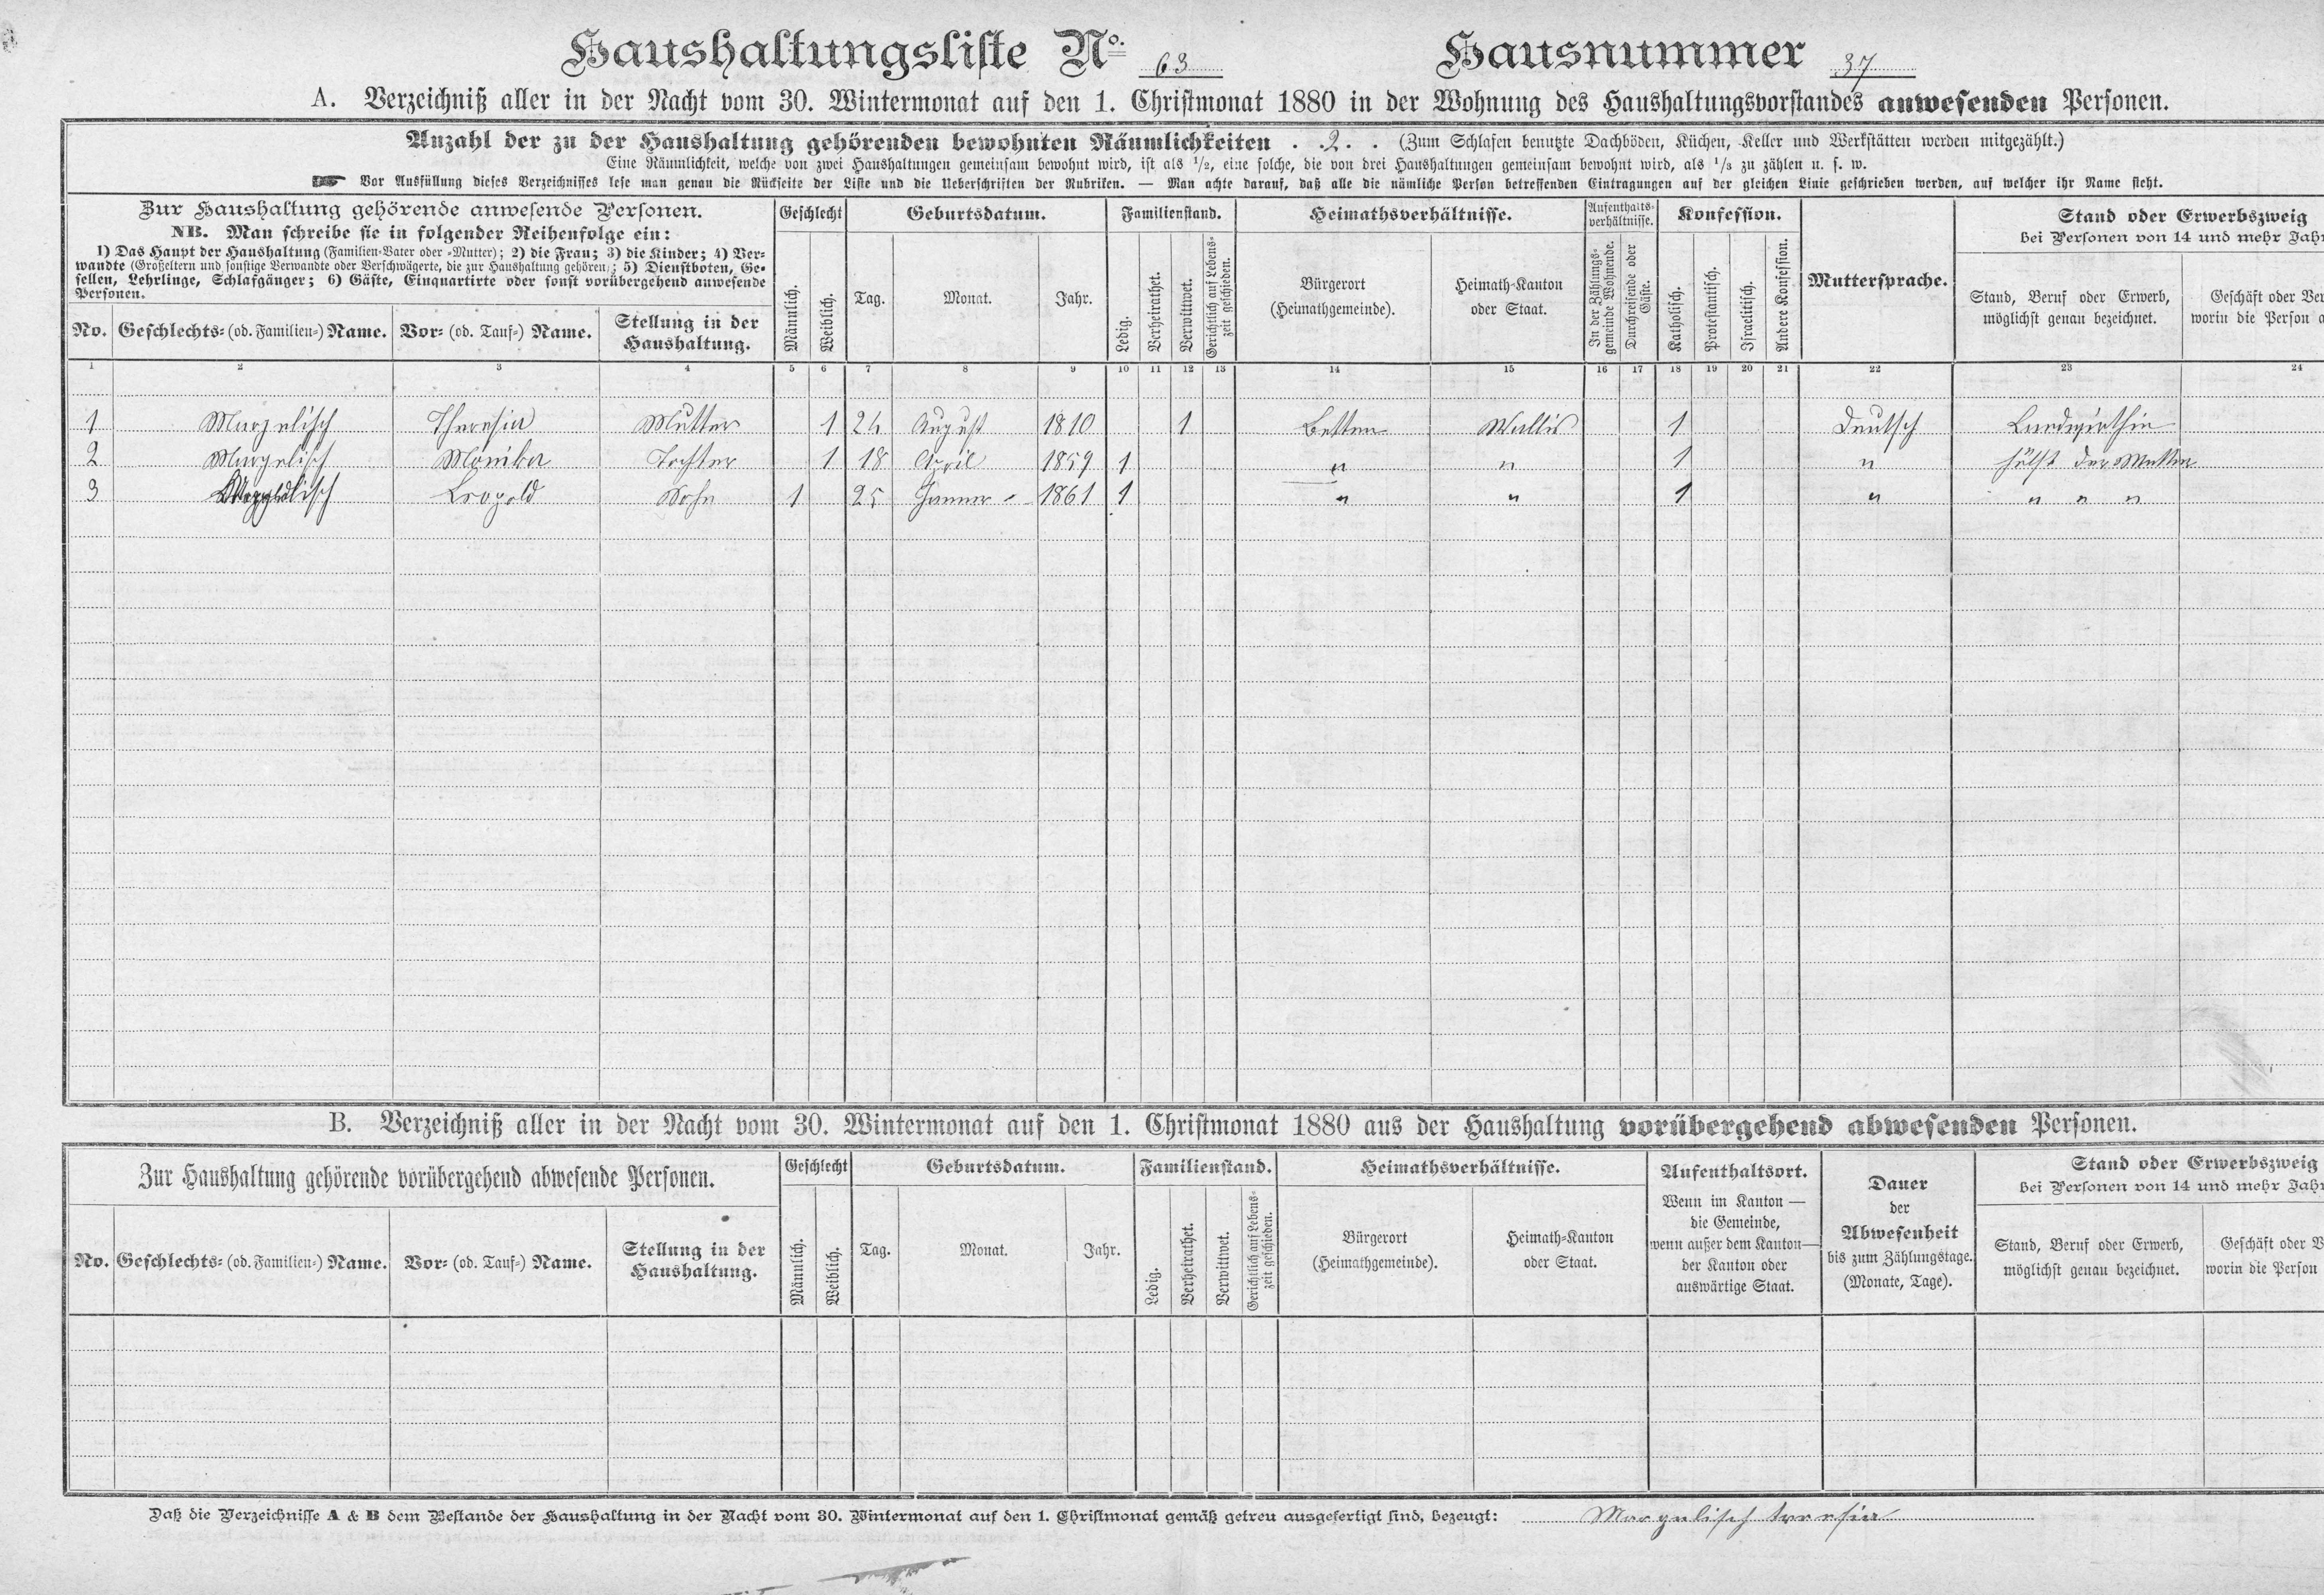 Haushaltungsliste No. 63 Hausnummer 37
A. Verzeichniß aller in der Nacht vom 30. Wintermonat auf den 1. Christmonat 1880 in der Wohnung des Haushaltungsvorstandes anwesenden Personen.
Anzahl der zu der Haushaltung gehörenden bewohnten Räumlichkeiten . 2 . . (Zum Schlafen benutzte Dachböden, Küchen, Keller und Werkstätten werden mitgezählt.)
Eine Räumlichkeit, welche von zwei Haushaltungen gemeinsam bewohnt wird, ist als 1/2, eine solche, die von drei Haushaltungen gemeinsam bewohnt wird, als 1/3 zu zählen u. s. w.
Vor Ausfüllung dieses Verzeichnisses lese man genau die Rückseite der Liste und die Ueberschriften der Rubriken. — Man achte darauf, daß alle die nämliche Person betreffenden Eintragungen auf der gleichen Linie geschrieben werden, auf welcher ihr Name steht.
Zur Haushaltung gehörende anwesende Personen.
NB. Man schreibe sie in folgender Reihenfolge ein:
1) Das Haupt der Haushaltung (Familien-Vater oder -Mutter); 2) die Frau; 3) die Kinder; 4) Ver-
wandte (Großeltern und sonstige Verwandte oder Verschwägerte, die zur Haushaltung gehören); 5) Dienstboten, Ge-
sellen, Lehrlinge, Schlafgänger; 6) Gäste, Einquartirte oder sonst vorübergehend anwesende
Personen.
No. Geschlechts- (od. Familien-) Name. Vor- (od. Tauf-) Name. Stellung in der
Haushaltung.
Geschlecht
Männlich. Weiblich.
Geburtsdatum.
Tag. Monat. Jahr.
Familienstand.
Ledig. Verheirathet. Verwittwet. Gerichtlich auf Lebens-
zeit geschieden.
Heimathsverhältnisse.
Bürgerort
(Heimathgemeinde).
Heimath-Kanton
oder Staat.
Aufenthalts-
verhältnisse.
In der Zählungs-
gemeinde Wohnende.
Durchreisende oder
Gäste.
Konfession.
Katholisch. Protestantisch. Israelitisch. Andere Konfession.
Muttersprache.
Stand oder Erwerbszweig
bei Personen von 14 und mehr Jahr
Stand, Beruf oder Erwerb,
möglichst genau bezeichnet.
Geschäft oder Ber
worin die Person a
1 2 3 4 5 6 7 8 9 10 11 12 13 14 15 16 17 18 19 20 21 22 23 24
1 Margelisch Theresia Mutter 1 24 August 1810 1 Betten Wallis 1 Deutsch Landwirthin
2 Margelisch Monika Tochter 1 18 April 1859 1 " " 1 " hülft der Mutter
3 Margelisch Leopold Sohn 1 25 Jenner 1861 1 " " 1 " " " "
B. Verzeichniß aller in der Nacht vom 30. Wintermonat auf den 1. Christmonat 1880 aus der Haushaltung vorübergehend abwesenden Personen.
Zur Haushaltung gehörende vorübergehend abwesende Personen.
No. Geschlechts- (od. Familien-) Name. Vor- (od. Tauf-) Name. Stellung in der
Haushaltung.
Geschlecht
Männlich. Weiblich.
Geburtsdatum.
Tag. Monat. Jahr.
Familienstand.
Ledig. Verheirathet. Verwittwet. Gerichtlich auf Lebens-
zeit geschieden.
Heimathsverhältnisse.
Bürgerort
(Heimathgemeinde).
Heimath-Kanton
oder Staat.
Aufenthaltsort.
Wenn im Kanton —
die Gemeinde,
wenn außer dem Kanton—
der Kanton oder
auswärtige Staat.
Dauer
der
Abwesenheit
bis zum Zählungstage.
(Monate, Tage).
Stand oder Erwerbszweig
bei Personen von 14 und mehr Jahr
Stand, Beruf oder Erwerb,
möglichst genau bezeichnet.
Geschäft oder B
worin die Person
Daß die Verzeichnisse A & B dem Bestande der Haushaltung in der Nacht vom 30. Wintermonat auf den 1. Christmonat gemäß getreu ausgefertigt sind, bezeugt: Margelisch tresia